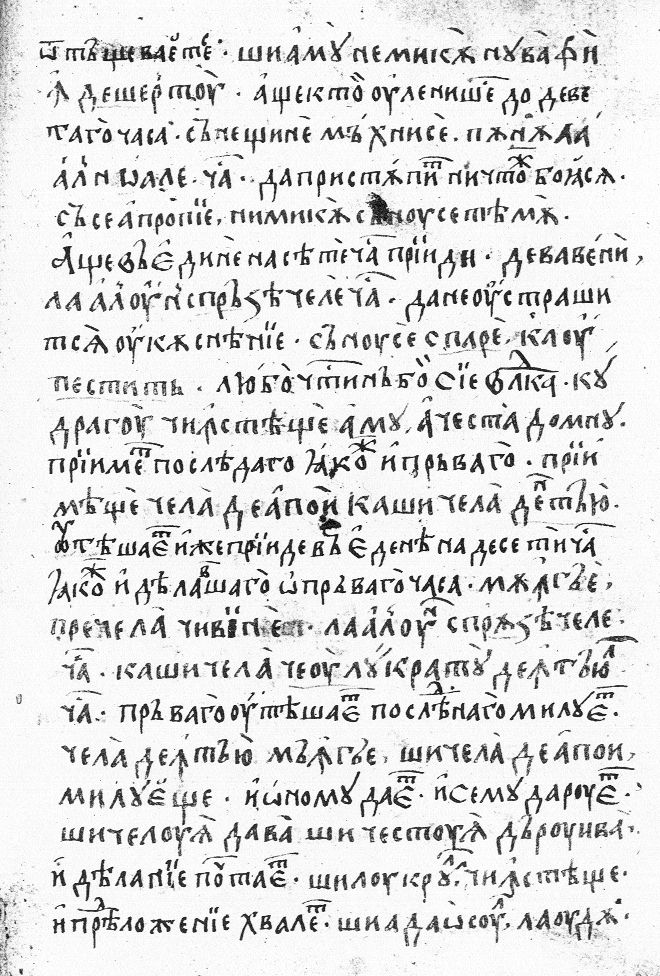 ѿ тъщеваеⷮсе · ши амꙋ немикѫ нꙋва фи
ꙟ дешертоу · аще кто оуленишⷭе до девѣ
таго часа · сънещине мъ хнисе · пѫнѫ ла
ал҃н ѡале · ча҃ · да пристꙋпиⷮ ничтоⷤ боѧсѧ ·
съсе апропїе, нимикѫ съ ноу се тѣмѫ ·
Аще въ единенасѣте ча҃ прїиди · де ва вени,
ла ал оун спръзѣчеле ча҃ · да не оустраши
тсѧ оукѫснѣнїе · съ ноу се спаре, кѫ оу
пестить · любочтинъ бо сїе влⷣка · кꙋ
драгоу чинстѣще амꙋ, ачеста домну ·
прїимеⷮ послѣдаго ꙗкоⷤ и прьваго · прїи
мѣще чела де апои каши чела дентъю ·
ѹтѣшаеⷮ иже прїиде въ единенадесети ча҃
ꙗкоⷤ и дѣлавшаго ѿ прьваго часа · мѫнгѣе,
пре чела чи вїине · ла ал оуⷩ спрѫзѣчеле ·
ча҃ · каши чела че оу лꙋкратꙋ деꙟтъюⷧ
ча҃ · прьваго оутѣшаеⷮ послѣⷣнаго милꙋеⷮ ·
чела деꙟтъю мъꙟгъе, ши чела де апои,
милꙋѣще · и ѡномꙋ даеⷮ · и семꙋ дароуеⷮ ·
ши челоуѧ дава ши честоуѧ дъроуива ·
и дѣланїе поⷱтаеⷮ · ши лоукрꙋⷧ, чинстѣще ·
и прѣⷣложенїе хвалеⷮ · ши адаѡсоуⷧ, лаоудѫ ·